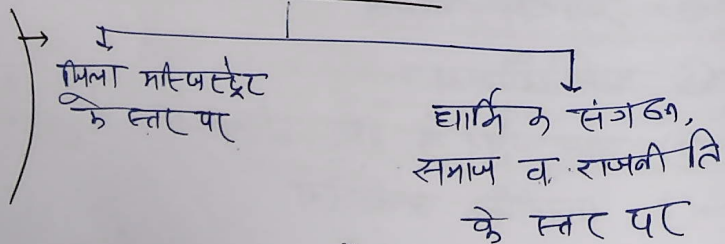 जिला मजिस्ट्रेट
के स्तर पर
धार्मिक संगठन,
समाज व राजनीति
के स्तर पर